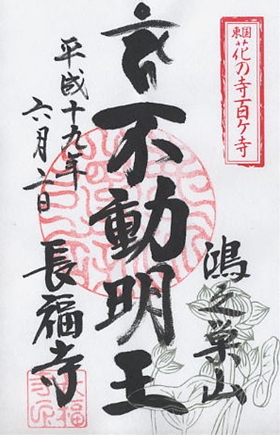 東国
花の寺百ヶ寺
鴻之巣山
不動明王
平成十九年
六月二日
長福寺